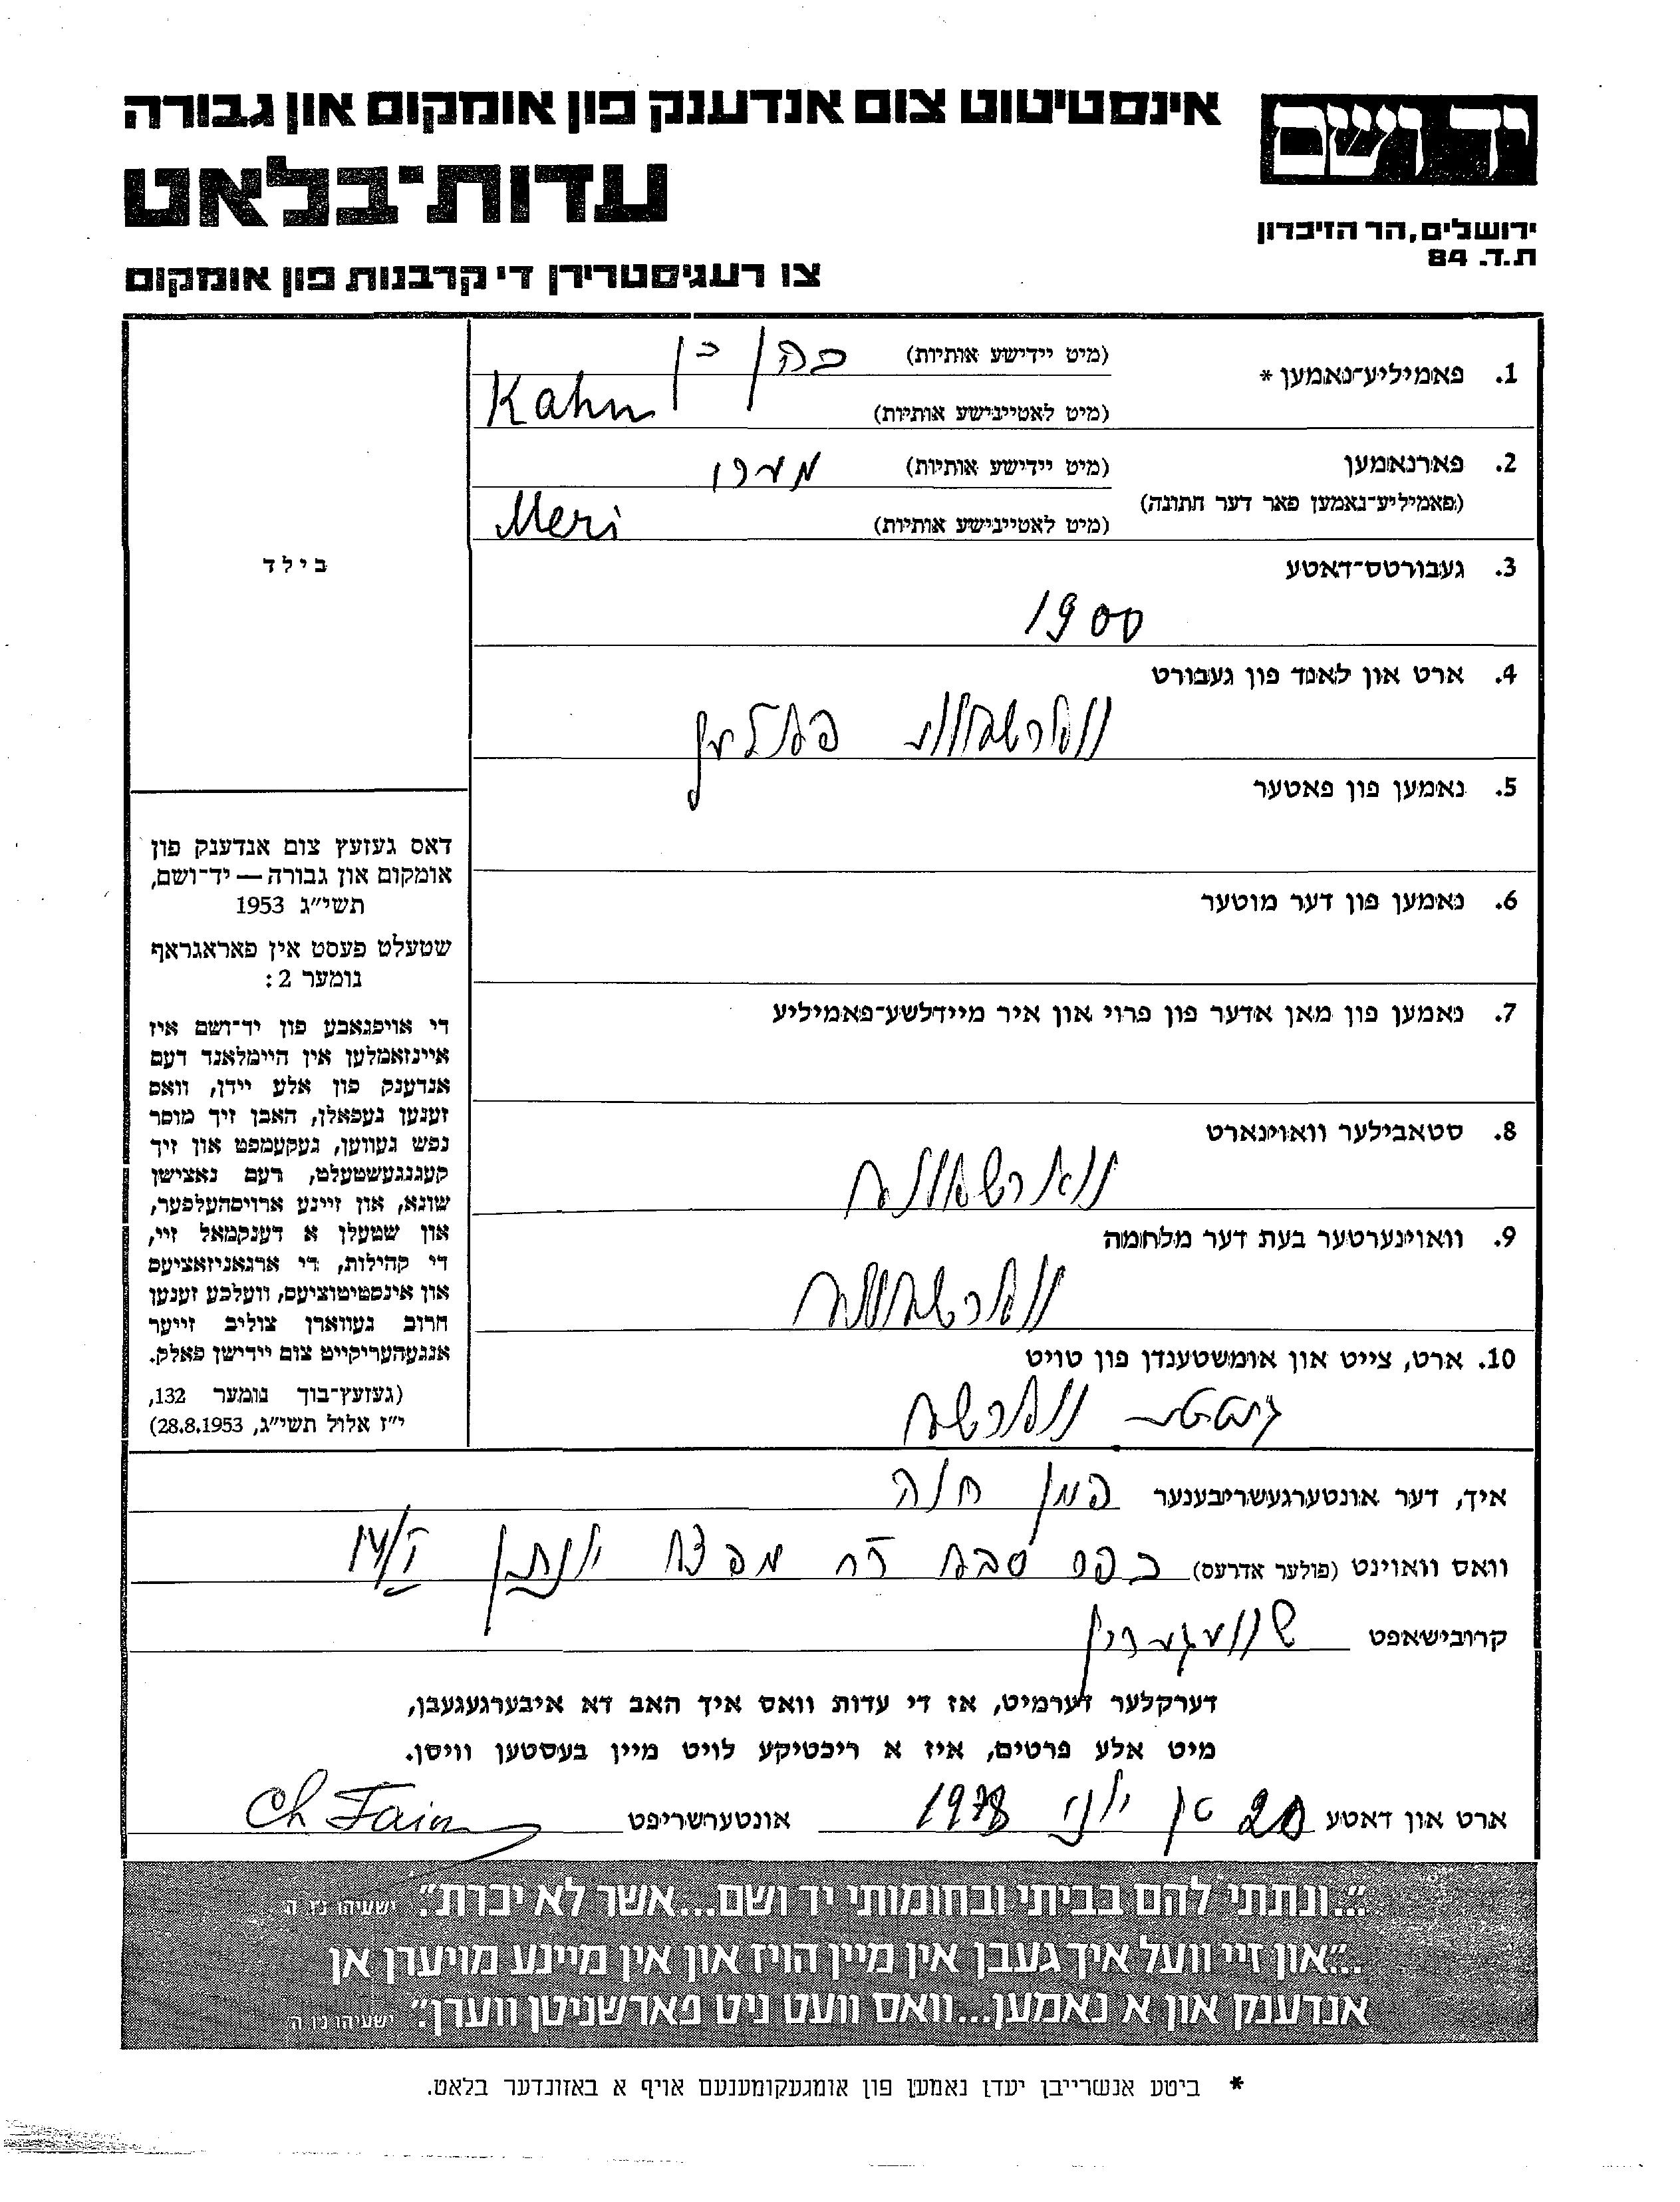 אינסטיטוט צום אנדענק פון אומקום און גבורה
יד ושם
עדות־בלאט
ירושלים, הר הזיכרון
ת.ד. 84
צו רעגיסטרירן די קרבנות פון אומקום
1. פאמיליע־נאמען * (מיט יידישע אותיות) כהן
(מיט לאטיינישע אותיות) Kahn
2. פארנאמען (מיט יידישע אותיות) מערי
(פאמיליע־נאמען פאר דער חתונה) (מיט לאטיינישע אותיות) Meri
בילד
3. געבורטס־דאטע
1900
4. ארט און לאנד פון געבורט
ווארשאווע פאלען
5. נאמען פון פאטער
6. נאמען פון דער מוטער
7. נאמען פון מאן אדער פון פרוי און איר מיידלשע־פאמיליע
8. סטאבילער וואוינארט
ווארשאווא
9. וואוינערטער בעת דער מלחמה
ווארשאווא
10. ארט, צייט און אומשטענדן פון טויט
געטא ווארשא
דאס געזעץ צום אנדענק פון
אומקום און גבורה — יד־ושם,
תשי״ג 1953
שטעלט פעסט אין פאראגראף
נומער 2:
די אויפגאבע פון יד־ושם איז
איינזאמלען אין היימלאנד דעם
אנדענק פון אלע יידן, וואס
זענען געפאלן, האבן זיך מוסר
נפש געווען, געקעמפט און זיך
קעגנגעשטעלט, דעם נאצישן
שונא, און זיינע ארויסהעלפער,
און שטעלן א דענקמאל זיי,
די קהילות, די ארגאניזאציעס
און אינסטיטוציעס, וועלכע זענען
חרוב געווארן צוליב זייער
אנגעהעריקייט צום יידישן פאלק.
(געזעץ־בוך נומער 132,
י״ז אלול תשי״ג, 28.8.1953)
איך, דער אונטערגעשריבענער פיין חנה
וואס וואוינט (פולער אדרעס) כפר סבא רח מבצע יונתן
קרובישאפט שוועגערין
דערקלער דערמיט, אז די עדות וואס איך האב דא איבערגעגעבן,
מיט אלע פרטים, איז א ריכטיקע לויט מיין בעסטען וויסן.
ארט און דאטע 20 טן יוני 1978 אונטערשריפט Ch Fain
״...ונתתי להם בביתי ובחומותי יד ושם...אשר לא יכרת״. ישעיהו נו ה
...״און זיי וועל איך געבן אין מיין הויז און אין מיינע מויערן אן
אנדענק און א נאמען...וואס וועט ניט פארשניטן ווערן״. ישעיהו נו ה
* ביטע אנשרייבן יעדן נאמען פון אומגעקומענעם אויף א באזונדער בלאט.